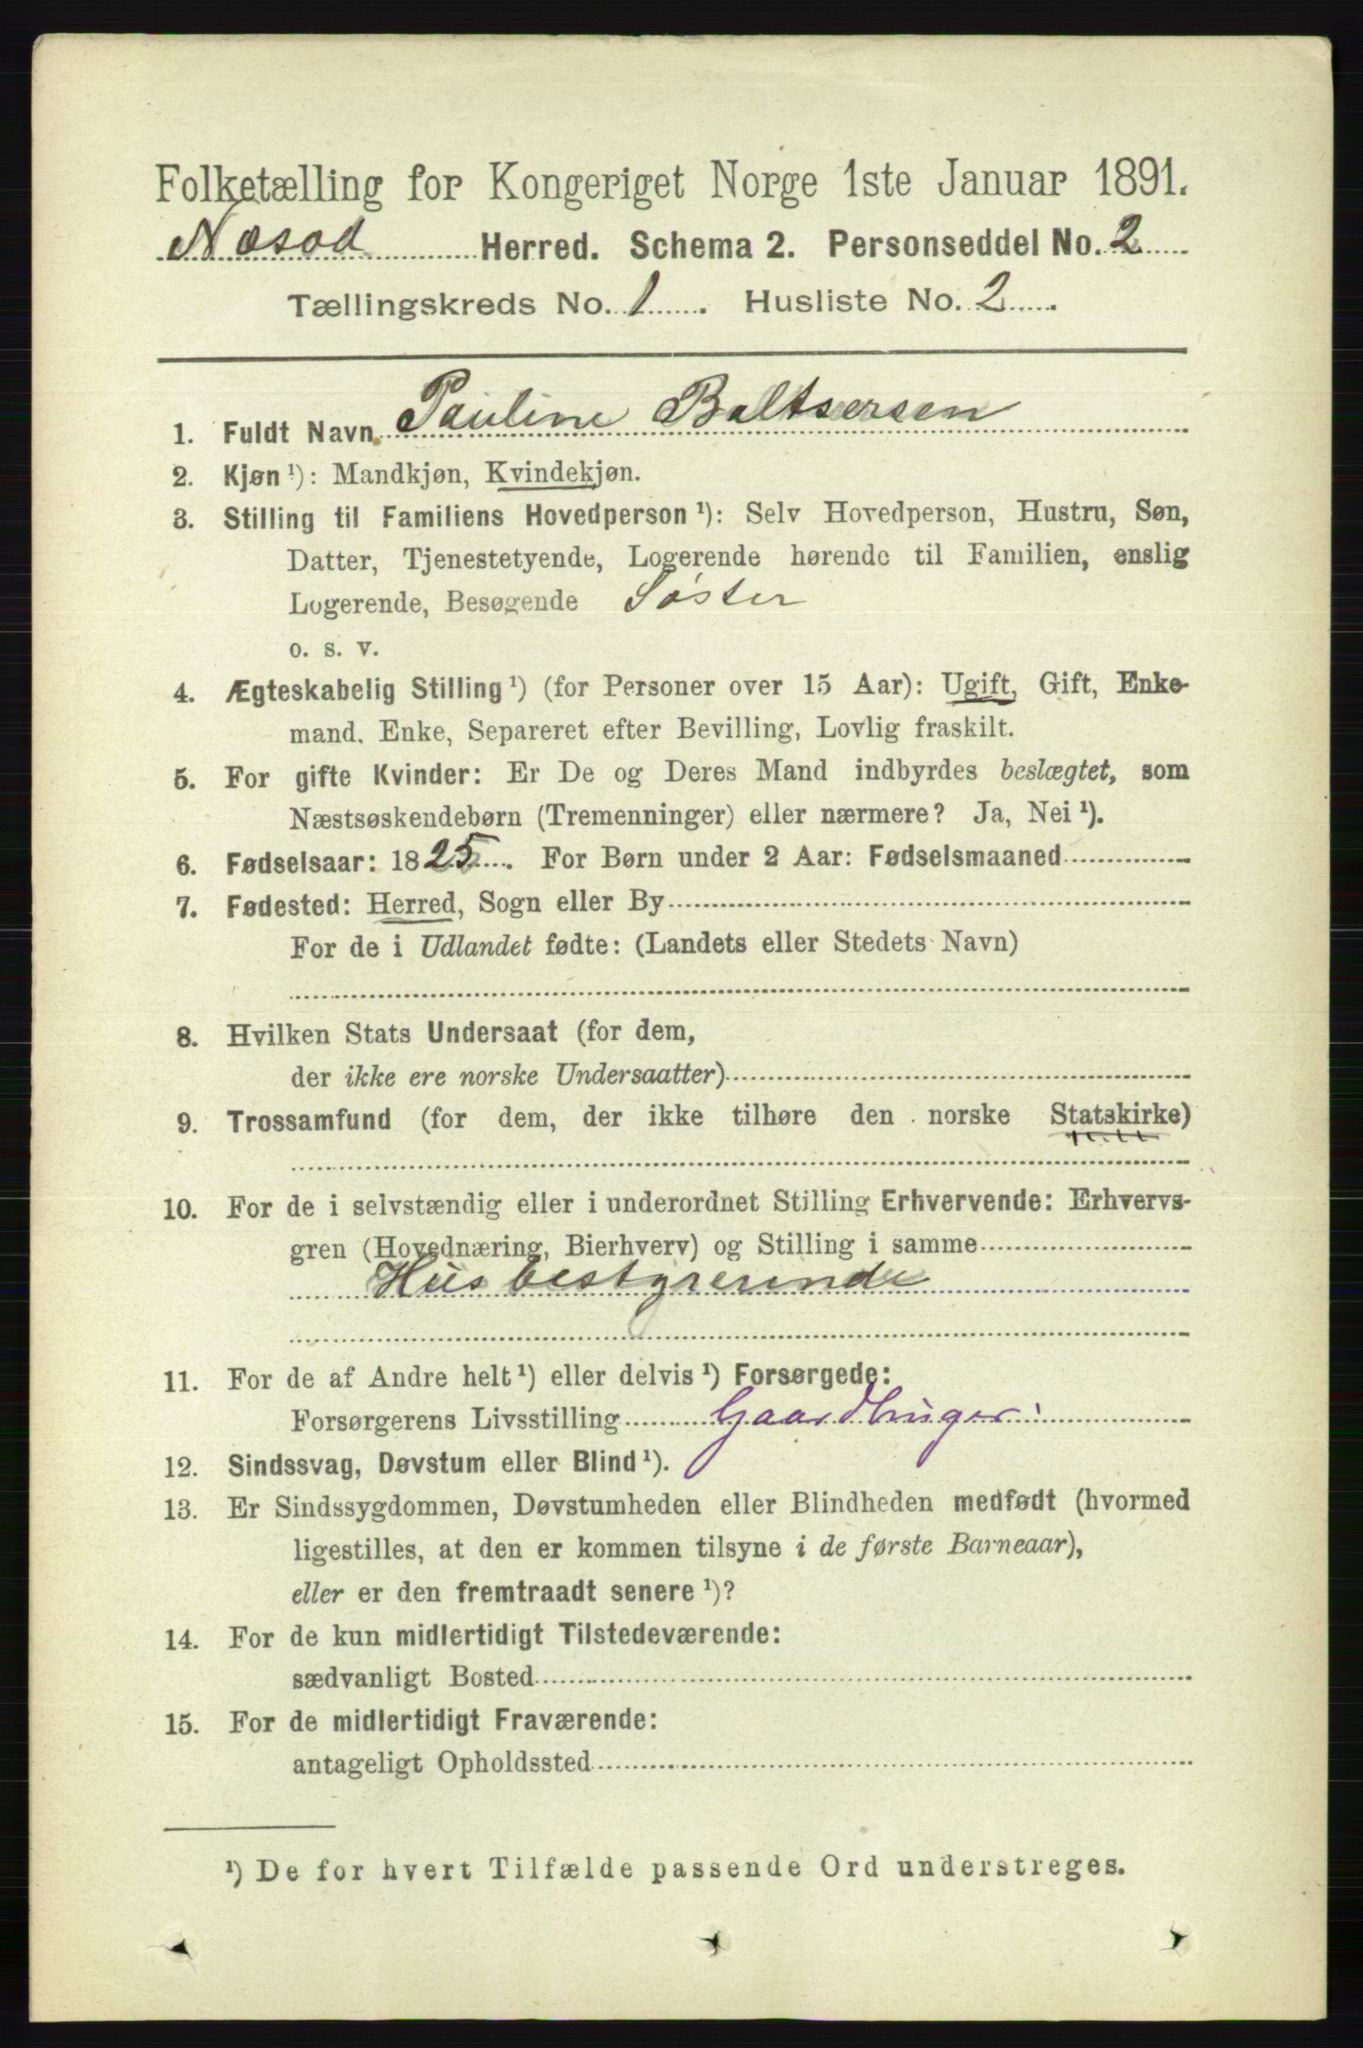 Folketælling for Kongeriget Norge 1ste Januar 1891.
Næsod Herred. Schema 2. Personseddel No. 2
Tællingskreds No. 1. Husliste No. 2.
1. Fuldt Navn Pauline Baltsersen
2. Kjøn ¹): Mandkjøn, Kvindekjøn.
3. Stilling til Familiens Hovedperson ¹): Selv Hovedperson, Hustru, Søn,
Datter, Tjenestetyende, Logerende hørende til Familien, enslig
Logerende, Besøgende Søster
o. s. v.
4. Ægteskabelig Stilling ¹) (for Personer over 15 Aar): Ugift, Gift, Enke-
mand, Enke, Separeret efter Bevilling, Lovlig fraskilt.
5. For gifte Kvinder: Er De og Deres Mand indbyrdes beslægtet, som
Næstsøskendebørn (Tremenninger) eller nærmere? Ja, Nei ¹).
6. Fødselsaar: 1825. For Børn under 2 Aar: Fødselsmaaned
7. Fødested: Herred, Sogn eller By
For de i Udlandet fødte: (Landets eller Stedets Navn)
8. Hvilken Stats Undersaat (for dem,
der ikke ere norske Undersaatter)
9. Trossamfund (for dem, der ikke tilhøre den norske Statskirke)
10. For de i selvstændig eller i underordnet Stilling Erhvervende: Erhvervs-
gren (Hovednæring, Bierhverv) og Stilling i samme
Husbestyrerinde
11. For de af Andre helt ¹) eller delvis ¹) Forsørgede:
Forsørgerens Livsstilling Gaardbruger.
12. Sindssvag, Døvstum eller Blind ¹).
13. Er Sindssygdommen, Døvstumheden eller Blindheden medfødt (hvormed
ligestilles, at den er kommen tilsyne i de første Barneaar),
eller er den fremtraadt senere ¹)?
14. For de kun midlertidigt Tilstedeværende:
sædvanligt Bosted
15. For de midlertidigt Fraværende:
antageligt Opholdssted
¹) De for hvert Tilfælde passende Ord understreges.